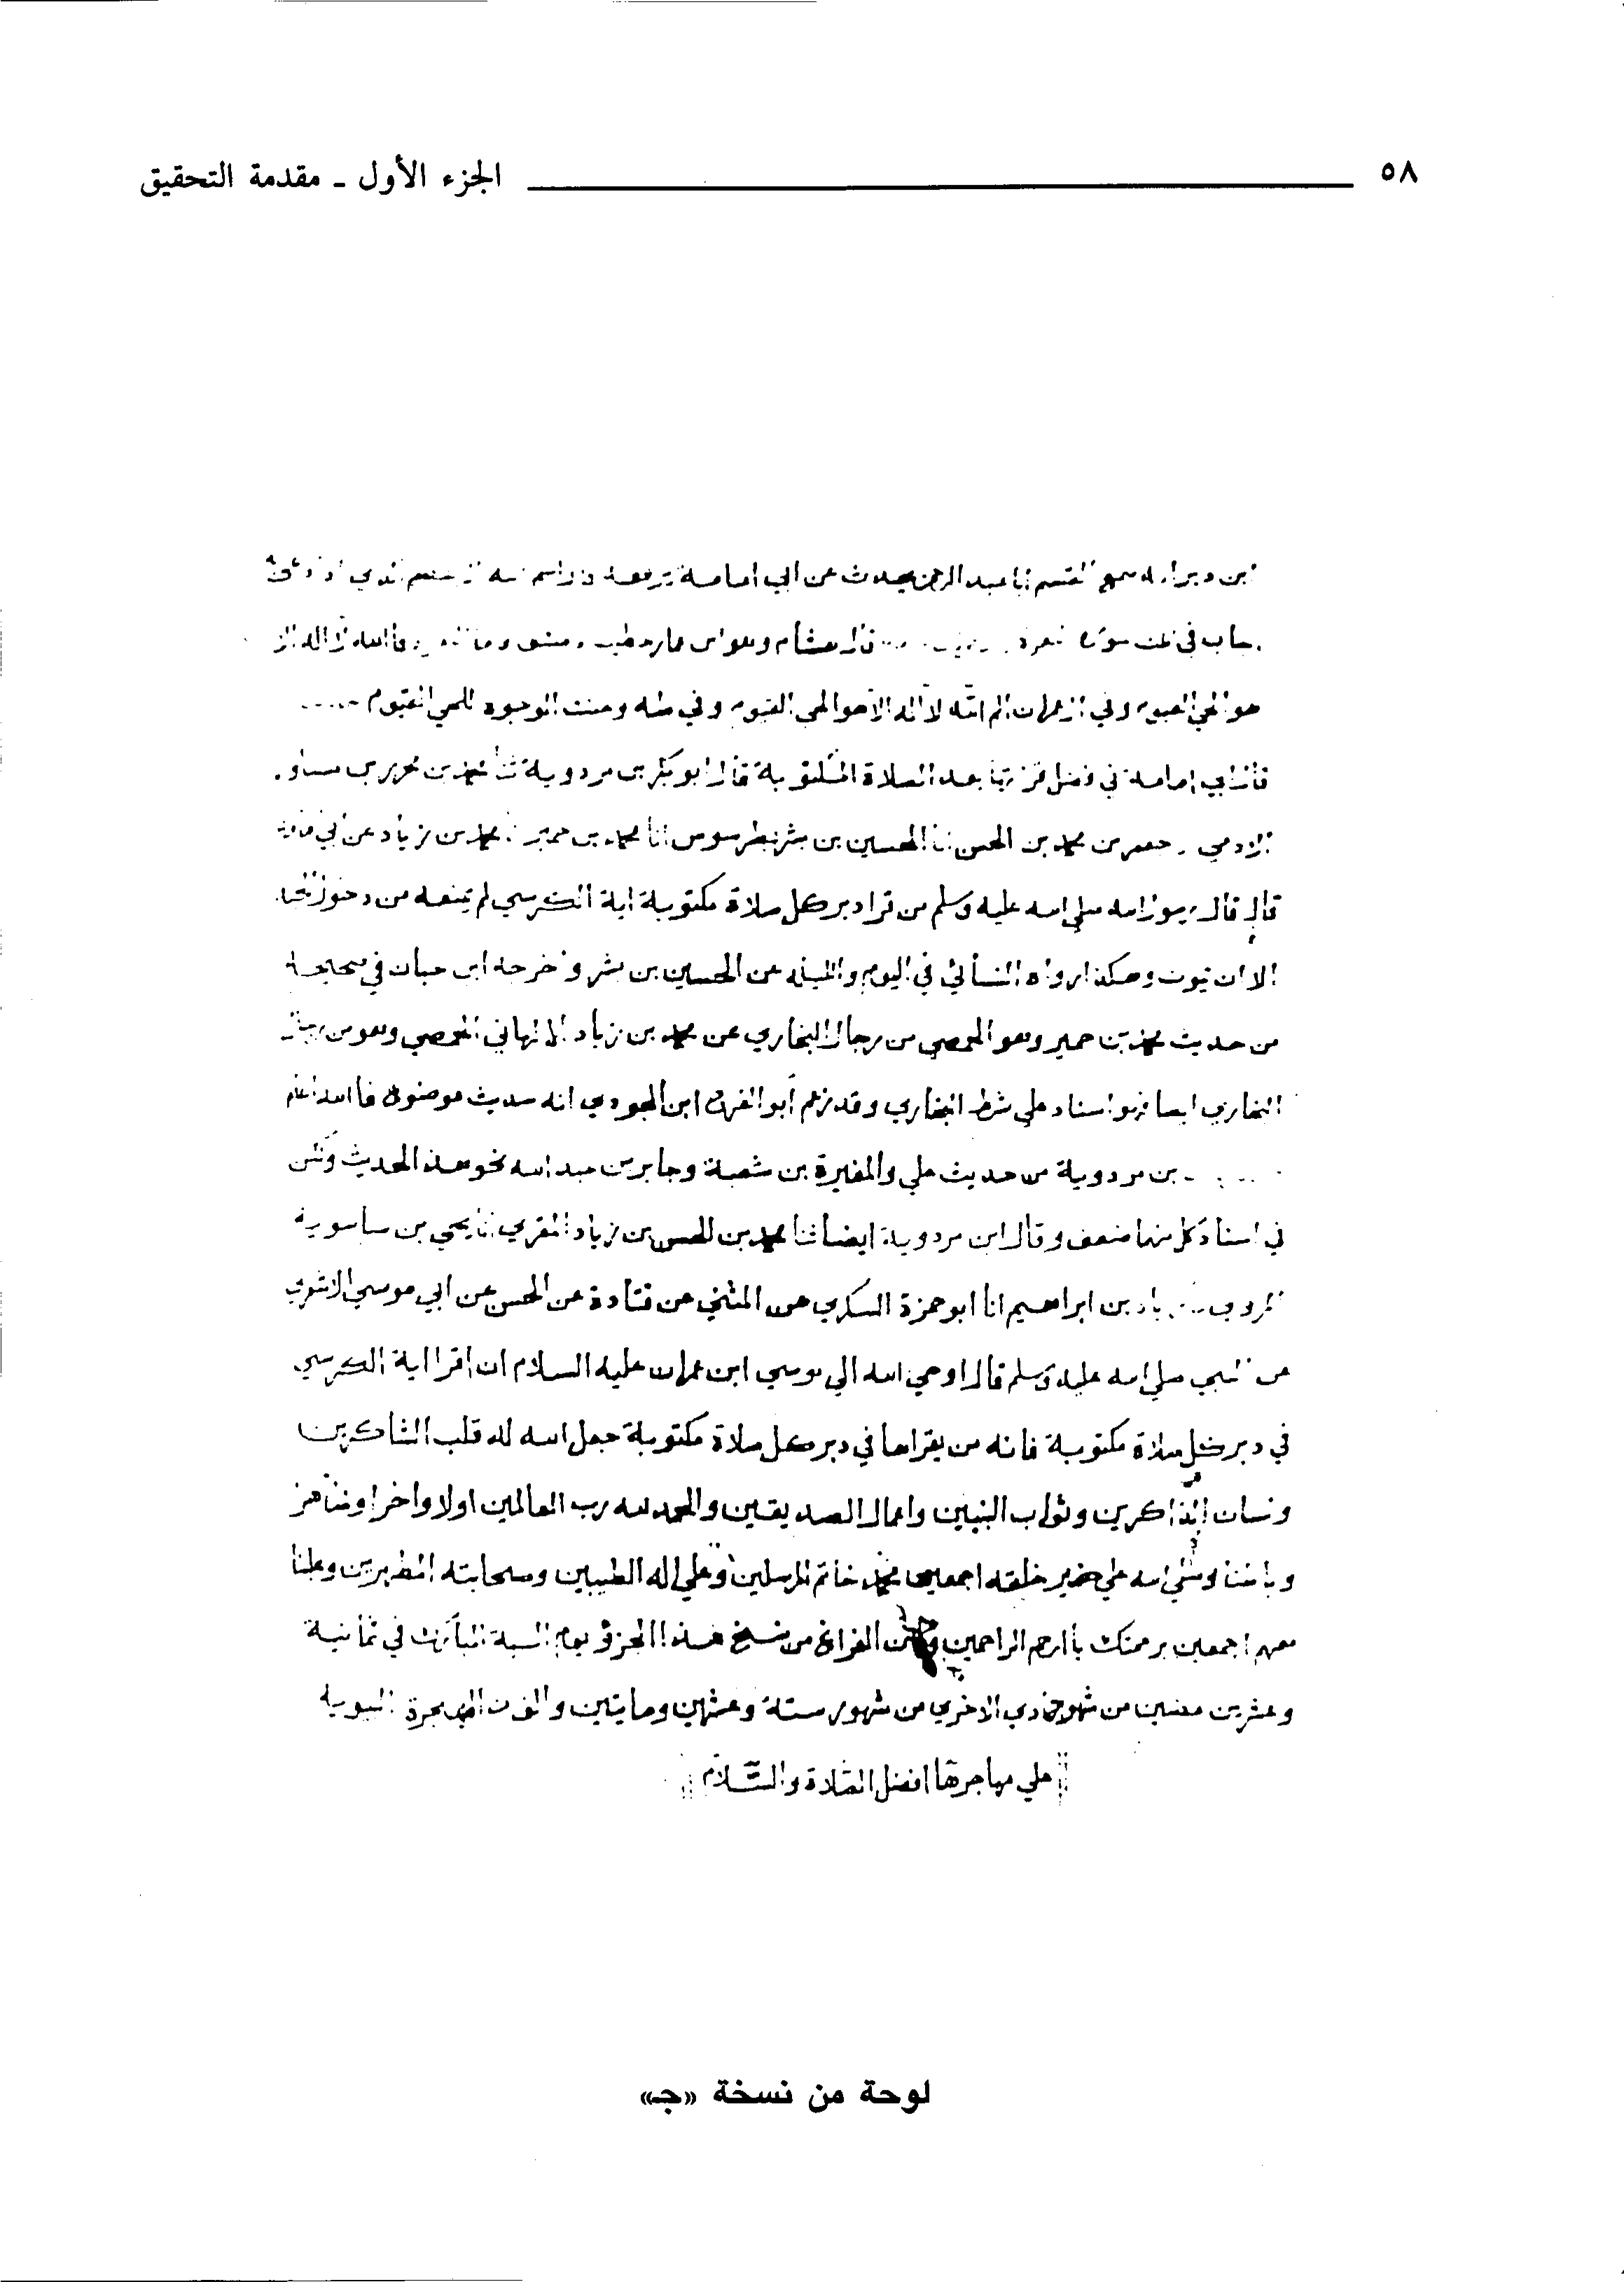 ٥٨ الجزء الأول - مقدمة التحقيق
سمع القسم ابا عبد الرحمن يحدث عن ابي امامة يرفعه
في ثلث سورة قال هشام وهو ابن عمار خطيب دمشق الله لا اله الا
هو الحي القيوم وفي ال عمران الم الله لا اله الا هو الحي القيوم وفي طه وعنت الوجوه للحي القيوم
ابي امامة في فضل بعد الصلاة المكتوبة قال ابو بكر بن مردوية ثنا محمد بن محرز بن
الادمي جعفر بن محمد بن الحسن انا الحسين بن بشر بطرسوس انا محمد بن حمير محمد بن زياد عن ابي
قال قال رسول الله صلي الله عليه وسلم من قرا دبر كل صلاة مكتوبة اية الكرسي لم يمنعه من دخول الجنة
الا ان يموت وهكذا رواه النسائي في اليوم والليله عن الحسين بن بشر واخرجه ابن حبان في صحيحه
من حديث محمد بن حمير وهو الحمصي من رجال البخاري عن محمد بن زياد الالهاني الحمصي وهو من رجال
البخاري ايضا فهو اسناد علي شرط البخاري وقد زعم أبو الفرج ابن الجوزي انه حديث موضوع فا الله اعلم
بن مردوية من حديث علي والمغيرة بن شعبة وجابر بن عبد الله نحو هذا الحديث ولكن
في اسناد كل منها ضعف وقال ابن مردوية ايضا ثنا محمد بن الحسن بن زياد المقري انا يحي بن
المروزي بن ابراهيم انا ابو حمزة السكري عن المثني عن قتادة عن الحسن عن ابي موسي الاشعري
عن النبي صلي الله عليه وسلم قال اوحي الله الي موسي ابن عمران عليه السلام ان اقرا اية الكرسي
في دبر كل صلاة مكتوبة فانه من يقراها في دبر كل صلاة مكتوبة جعل الله له قلب الشاكرين
ولسان الذاكرين وثواب النبيين واعمال الصديقين والحمد لله رب العالمين اولا واخرا وظاهر
وباطنا وصلي الله علي خير خلقه اجمعين محمد خاتم المرسلين وعلي اله الطيبين وصحابته المطهرين وعلينا
معهم اجمعين برحمتك يا ارحم الراحمين الفراغ من نسخ هذا الجزؤ يوم السبة المبارك في ثمانية
وعشرين مضين من شهر جمادي الاخري من شهور ستة وعشرين ومايتين والف من الهجرة النبوية
علي مهاجرها افضل الصلاة والسلام
لوحة من نسخة «جـ»